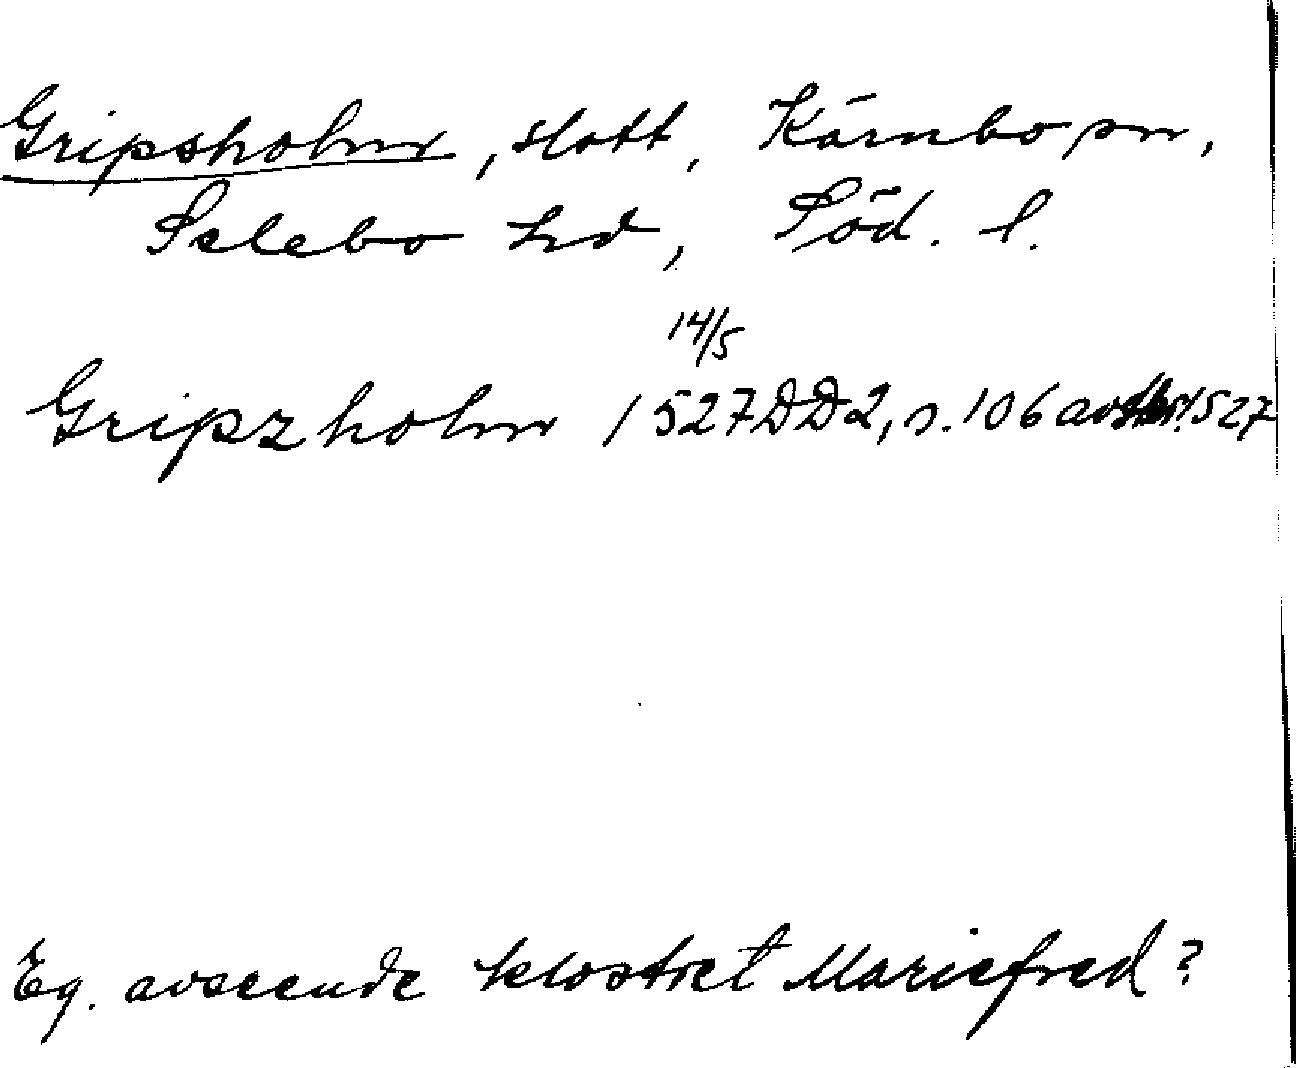 Gripsholm, slott, Kärnbo sn,
Selebo hd, Söd. l.
14/5
Gripzholm 1527 DD2, s. 106 avskr. 1527
Eg. avseende klostret Mariefred?